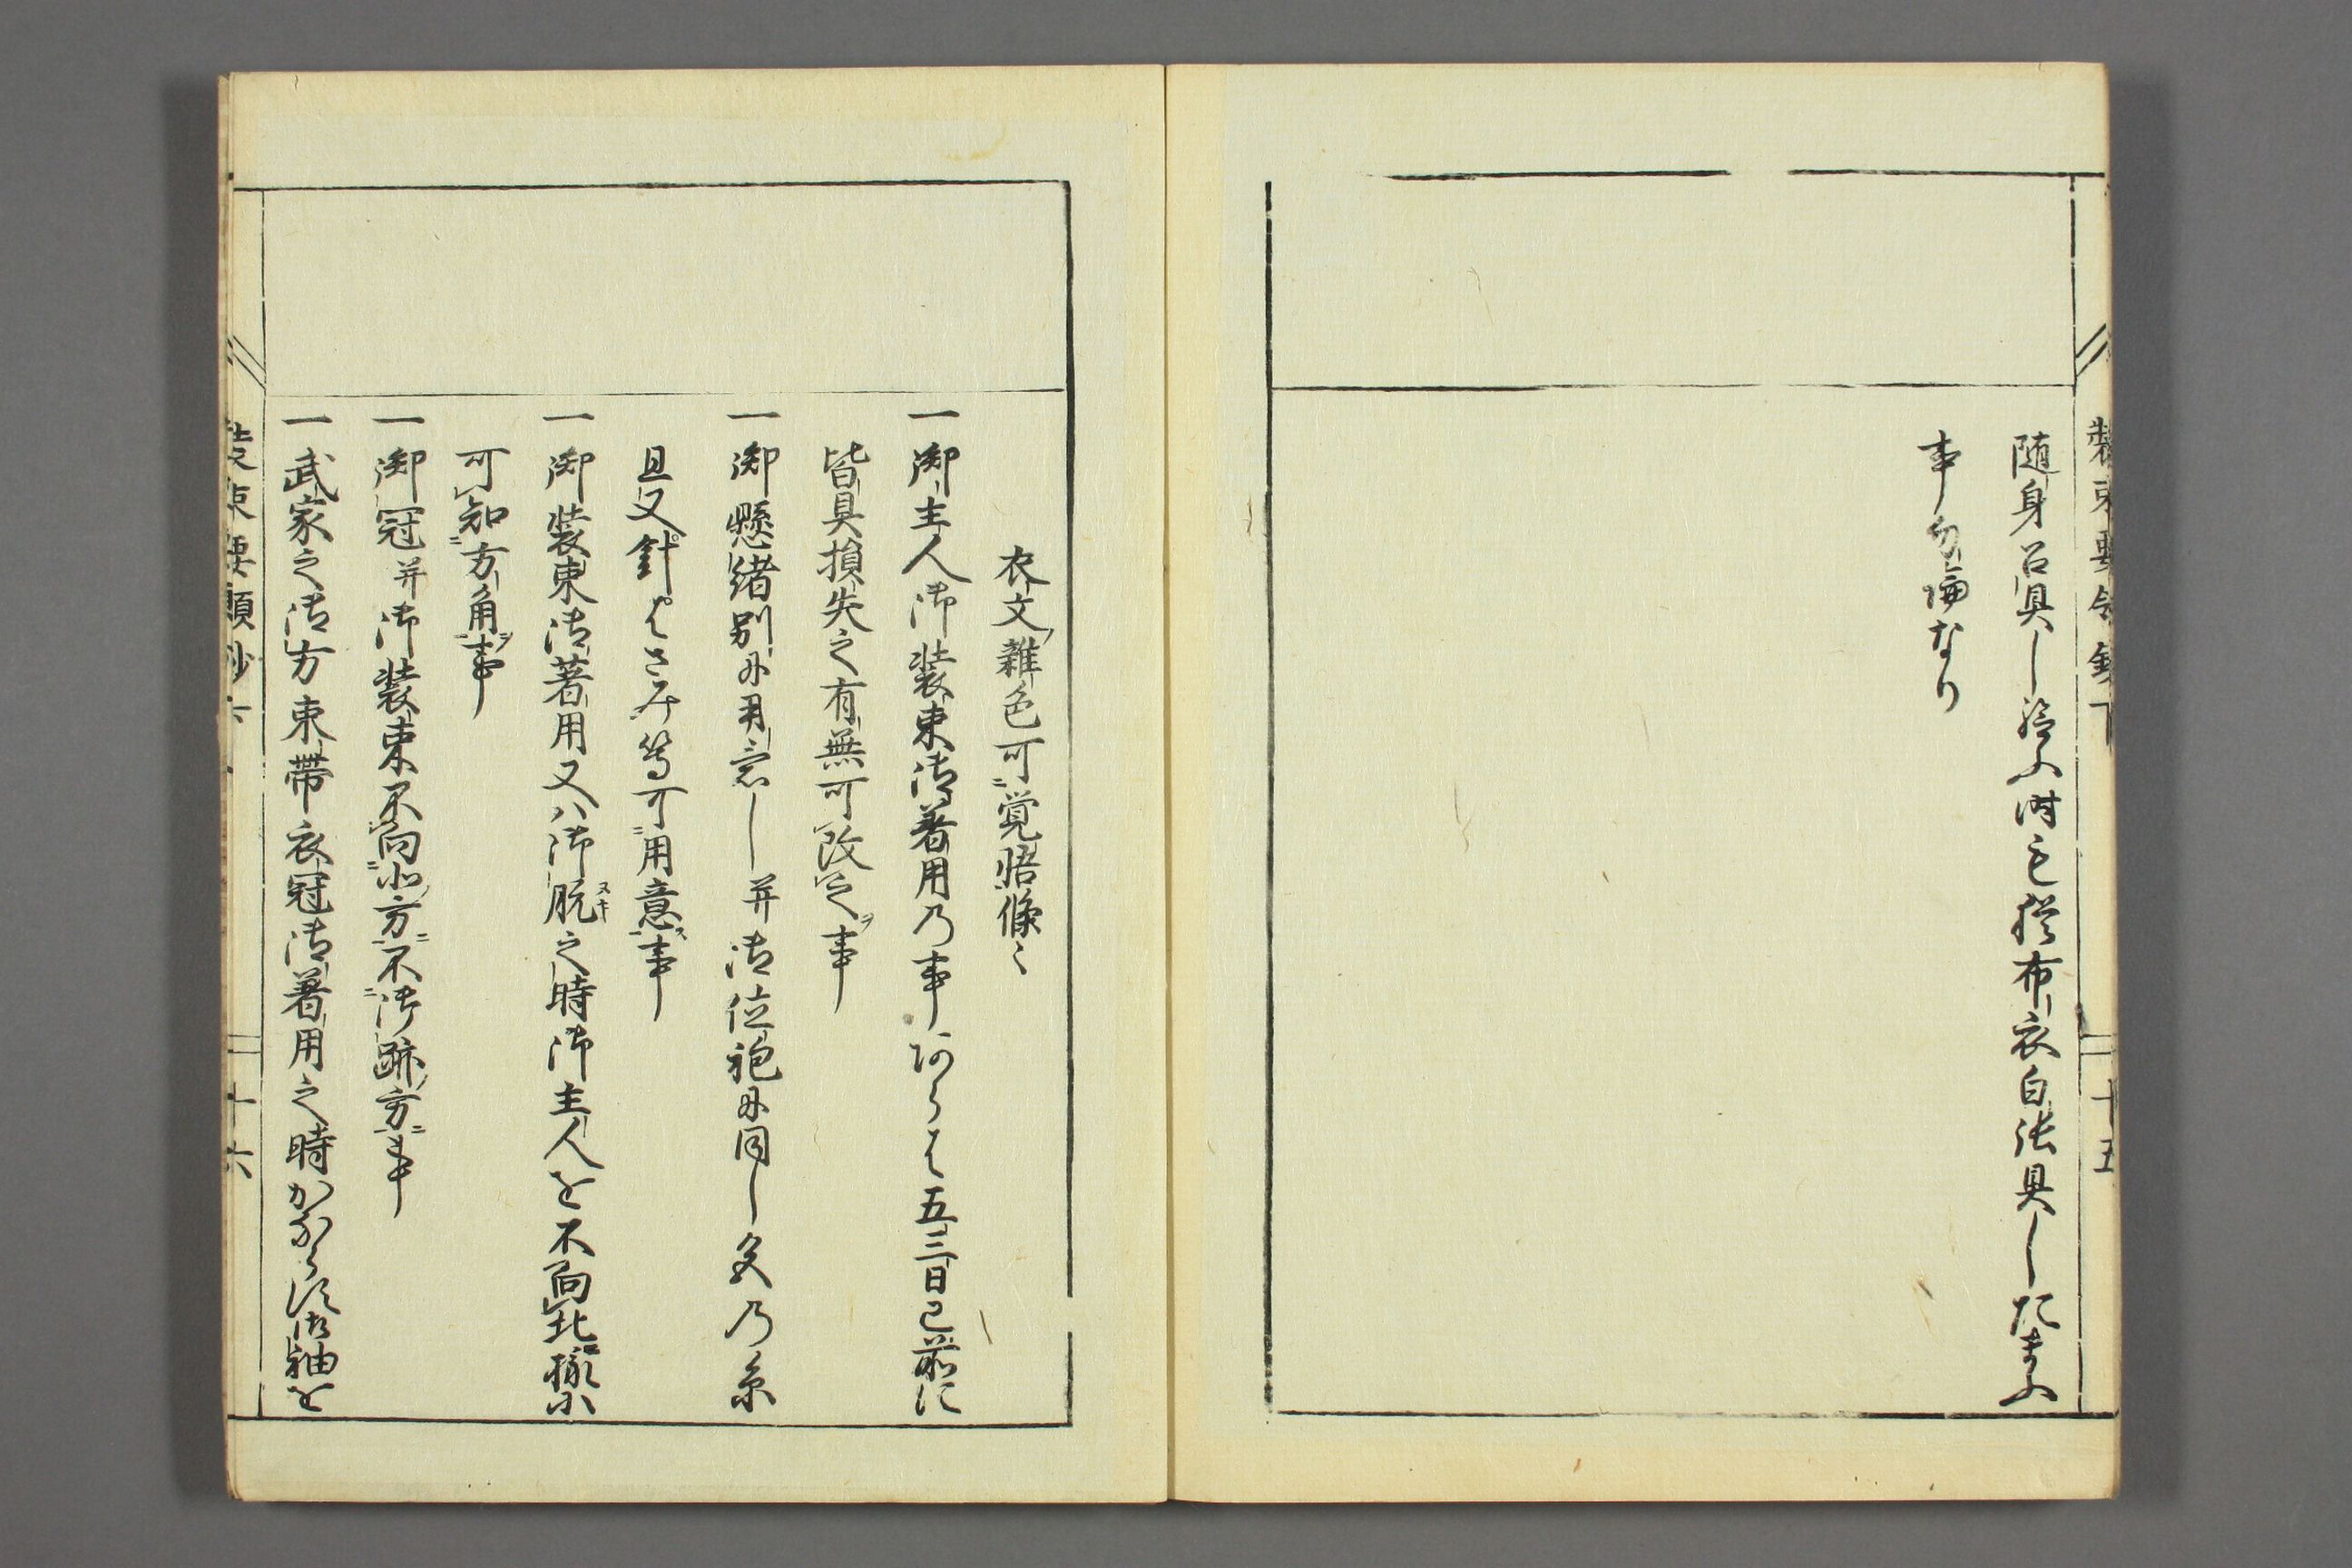 随身召具し給ふ時も從布衣白張具したまふ
事勿論なり
衣文雑色可覚悟條々
一御主人御装束御著用乃事あらは五三日已前に
皆具損失之有無可改之事
一御懸緒別に用意し并御位袍に同し色乃糸
且又針はさみ等可用意事
一御装束御著用又ハ御脱之時御主人を不向北様ニ
可知方角事
一御冠并御装束不向北方不御跡方事
一武家之御方束帯衣冠御著用之時かならす御袖を
装束要領抄下
十五
十六